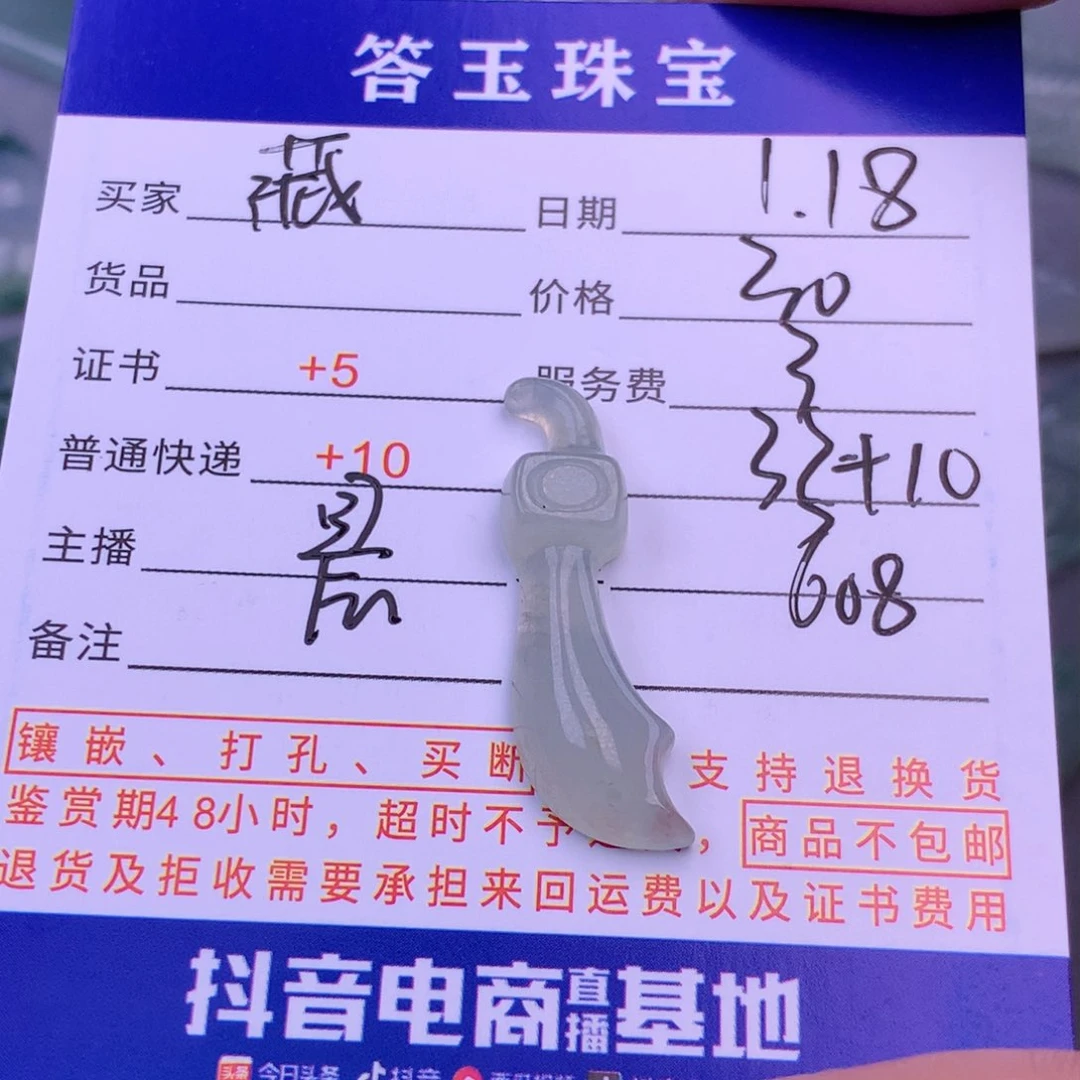 答玉珠宝
买家 藏 日期 1.18
货品 价格 30
证书 +5 服务费 5
普通快递 +10 35+10
主播 608
备注
镶嵌、打孔、买断 支持退换货
鉴赏期48小时，超时不予 ，商品不包邮
退货及拒收需要承担来回运费以及证书费用
抖音电商直播基地
头条 今日头条 抖音